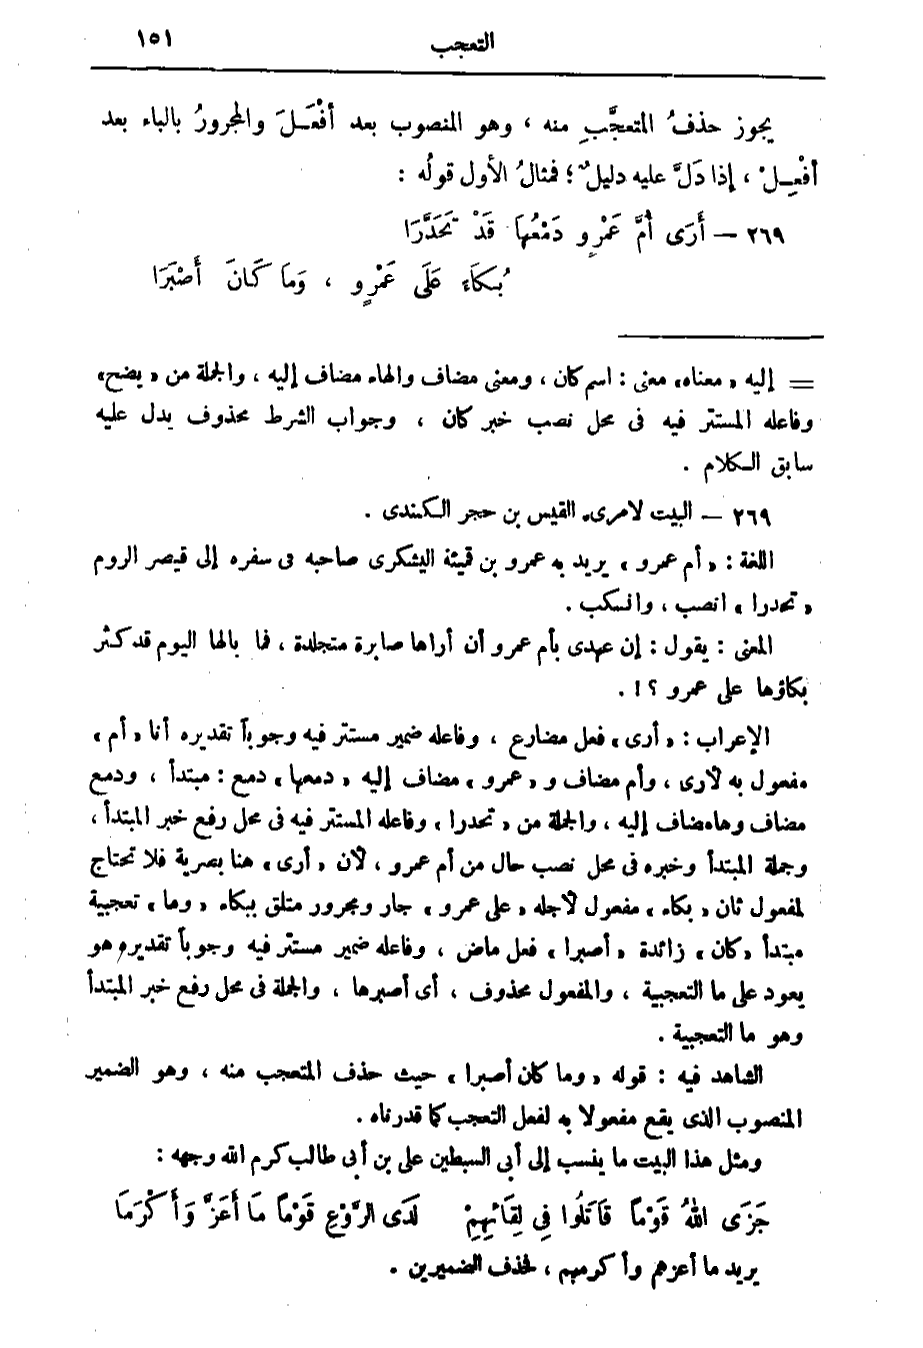 التعجب ١٥١
يجوز حذفُ المتعجَّبِ منه ، وهو المنصوب بعد أفْعَـلَ والمجرورُ بالباء بعد
أفْعِـلْ ، إذا دَلَّ عليه دليلٌ ؛ فمثالُ الأول قولُه :
٢٦٩ — أَرَى أُمَّ عَمْرٍو دَمْعُهَا قَدْ تَحَدَّرَا
بُكَاءً عَلَى عَمْرٍو ، وَمَا كَانَ أَصْبَرَا
= إليه « معناه » معنى : اسم كان ، ومعنى مضاف والهاء مضاف إليه ، والجملة من « يضح »
وفاعله المستتر فيه فى محل نصب خبر كان ، وجواب الشرط محذوف يدل عليه
سابق الكلام .
٢٦٩ — البيت لامرىء القيس بن حجر الكندى .
اللغة : « أم عمرو » يريد به عمرو بن قميئة اليشكرى صاحبه فى سفره إلى قيصر الروم
« تحدرا » انصب ، وانسكب .
المعنى : يقول : إن عهدى بأم عمرو أن أراها صابرة متجلدة ، فما بالها اليوم قد كثر
بكاؤها على عمرو ؟! .
الإعراب : « أرى » فعل مضارع ، وفاعله ضمير مستتر فيه وجوباً تقديره أنا « أم »
مفعول به لأرى ، وأم مضاف و « عمرو » مضاف إليه « دمعها » دمع : مبتدأ ، ودمع
مضاف وها مضاف إليه ، والجملة من « تحدرا » وفاعله المستتر فيه فى محل رفع خبر المبتدأ ،
وجملة المبتدأ وخبره فى محل نصب حال من أم عمرو ، لأن « أرى » هنا بصرية فلا تحتاج
لمفعول ثان « بكاء » مفعول لأجله « على عمرو » جار ومجرور متلق ببكاء « وما » تعجبية
مبتدأ « كان » زائدة « أصبرا » فعل ماض ، وفاعله ضمير مستتر فيه وجوباً تقديره هو
يعود على ما التعجبية ، والمفعول محذوف ، أى أصبرها ، والجملة فى محل رفع خبر المبتدأ
وهو ما التعجبية .
الشاهد فيه : قوله « وما كان أصبرا » حيث حذف المتعجب منه ، وهو الضمير
المنصوب الذى يقع مفعولا به لفعل التعجب كما قدرناه .
ومثل هذا البيت ما ينسب إلى أبى السبطين على بن أبى طالب كرم الله وجهه :
جَزَى اللهُ قَوْماً قَاتَلُوا فِى لِقَائِهِمْ لَدَى الرَّوْعِ قَوْماً مَا أَعَزَّ وَأَكْرَمَا
يريد ما أعزهم وأكرمهم ، فحذف الضميرين .